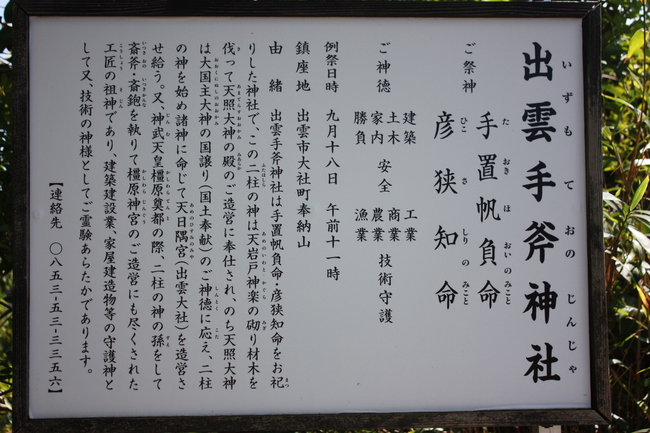 出雲手斧神社
いずもておのじんじゃ
ご祭神 手置帆負命
たおきほおいのみこと
彦狭知命
ひこさしりのみこと
ご神徳 建築 工業
土木 商業
家内安全 農業 技術守護
勝負 漁業
例祭日時 九月十八日 午前十一時
鎮座地 出雲市大社町奉納山
由緒 出雲手斧神社は手置帆負命・彦狭知命をお祀
りした神社で、この二柱の神は天岩戸神楽の砌り材木を
伐って天照大神の殿のご造営に奉仕され、のち天照大神
は大国主大神の国譲り(国土奉献)のご神徳に応え、二柱
の神を始め諸神に命じて天日隅宮(出雲大社)を造営さ
せ給う。又、神武天皇橿原奠都の際、二柱の神の孫をして
斎斧・斎鉋を執りて橿原神宮のご造営にも尽くされた
工匠の祖神であり、建築建設業、家屋建造物等の守護神と
して又、技術の神様としてご霊験あらたかであります。
【連絡先 〇八五三-五三-三三五六】